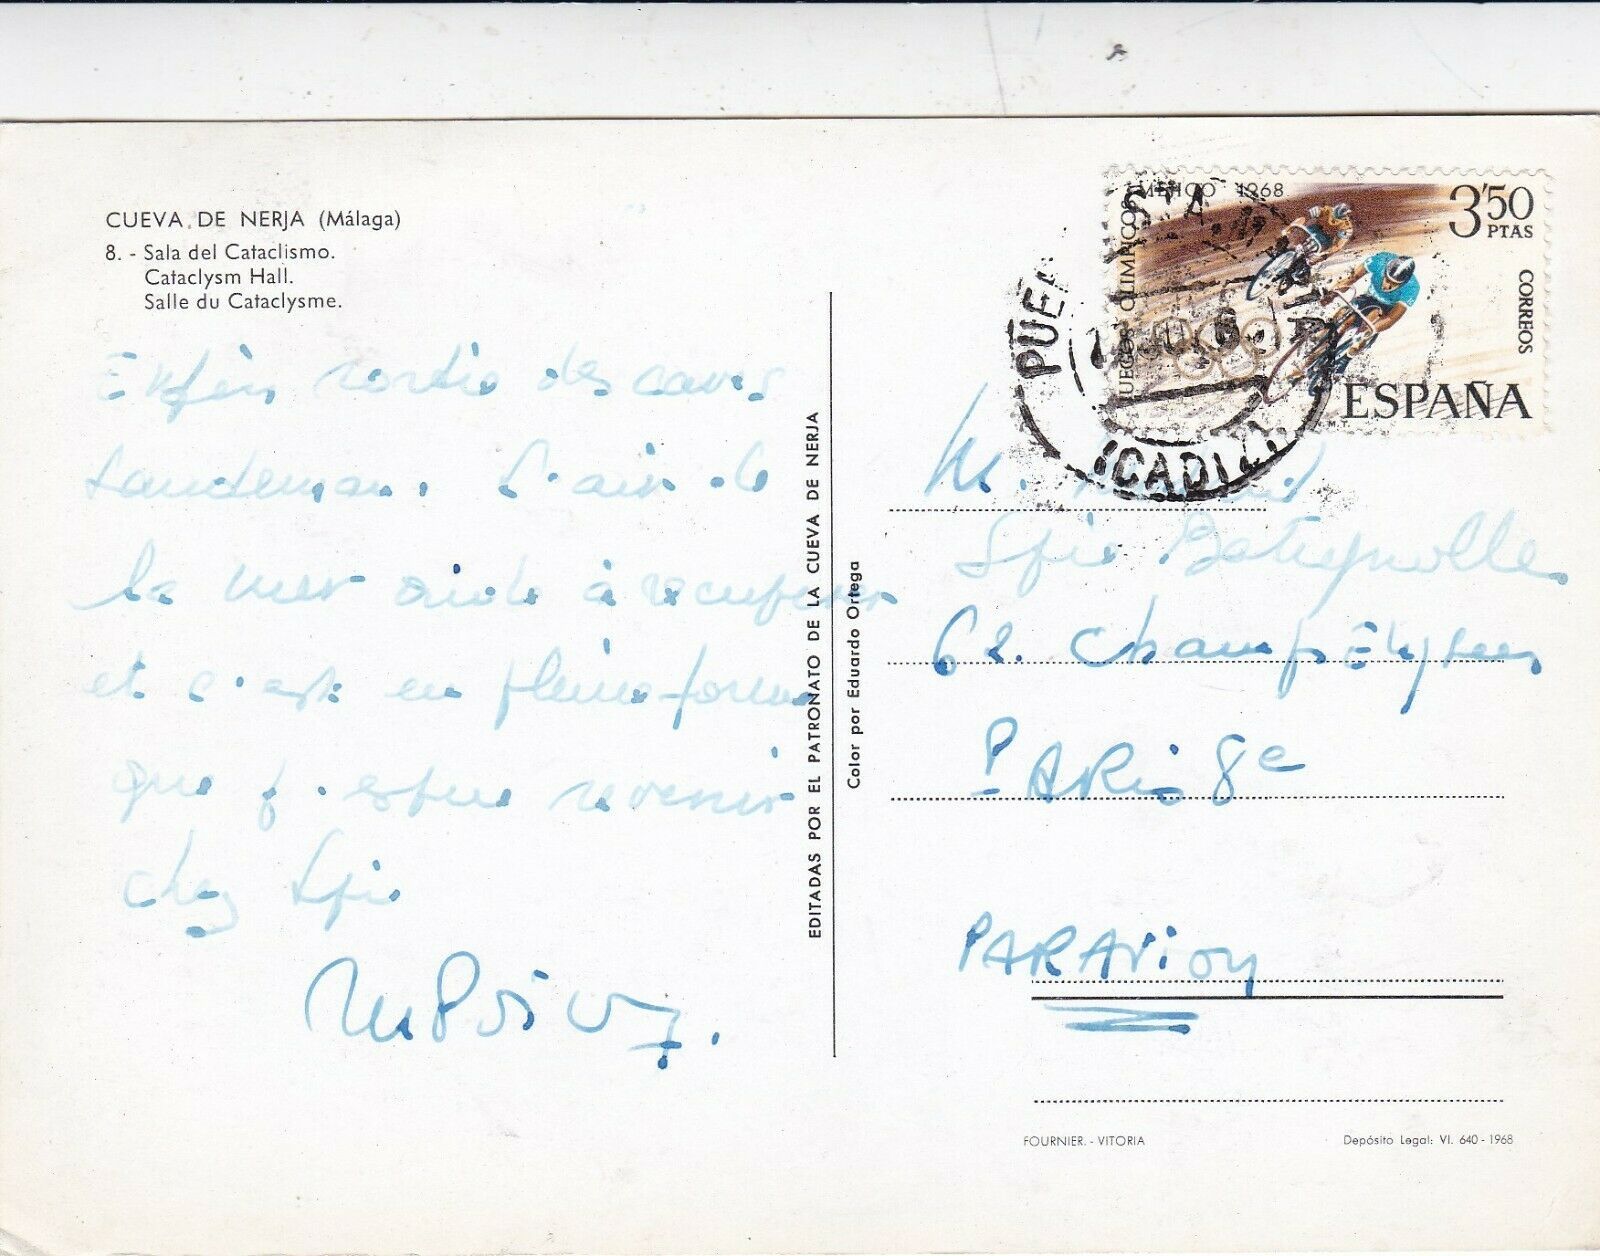 CUEVA DE NERJA (Málaga)
8. - Sala del Cataclismo.
Cataclysm Hall.
Salle du Cataclysme.
Enfin sortie des caves
Sandeman. L'air de
la mer aide à récupérer
et c'est en pleine forme
que j'espère revenir
chez Spie
EDITADAS POR EL PATRONATO DE LA CUEVA DE NERJA
Color por Eduardo Ortega
MEXICO 1968
JUEGOS OLIMPICOS
3'50
PTAS
CORREOS
ESPAÑA
F.N.M.T.
PUER STA RIA
(CADIZ)
M.
Spie Batignolles
62. Champs Elysées
PARIS 8e
PAR AVION
FOURNIER. - VITORIA
Depósito Legal: VI. 640 - 1968